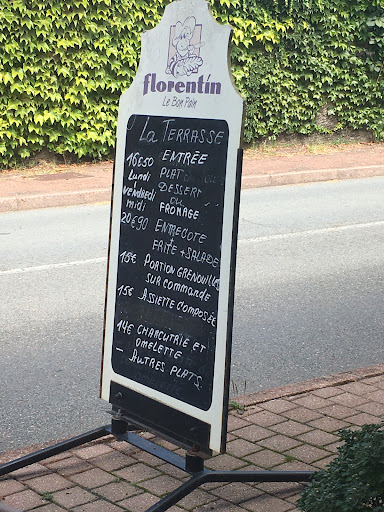 florentin
Le Bon Pain
La TERRASSE
16€50 ENTRÉE
Lundi PLAT
vendredi DESSERT
midi OU FROMAGE
20€90 ENTRECOTE
FRITE + SALADE
PORTION GRENOUILLES
SUR COMMANDE
15€ ASSIETTE COMPOSÉE
14€ CHARCUTRIE ET
OMELETTE
- AUTRES PLATS.